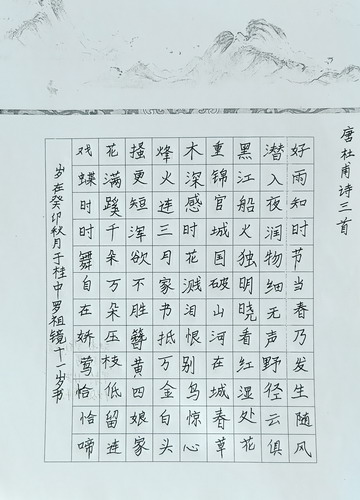 唐杜甫诗三首
好雨知时节当春乃发生随风
潜入夜润物细无声野径云俱
黑江船火独明晓看红湿处花
重锦官城国破山河在城春草
木深感时花溅泪恨别鸟惊心
烽火连三月家书抵万金白头
搔更短浑欲不胜簪黄四娘家
花满蹊千朵万朵压枝低留连
戏蝶时时舞自在娇莺恰恰啼
岁在癸卯秋月于桂中罗祖镜十一岁书